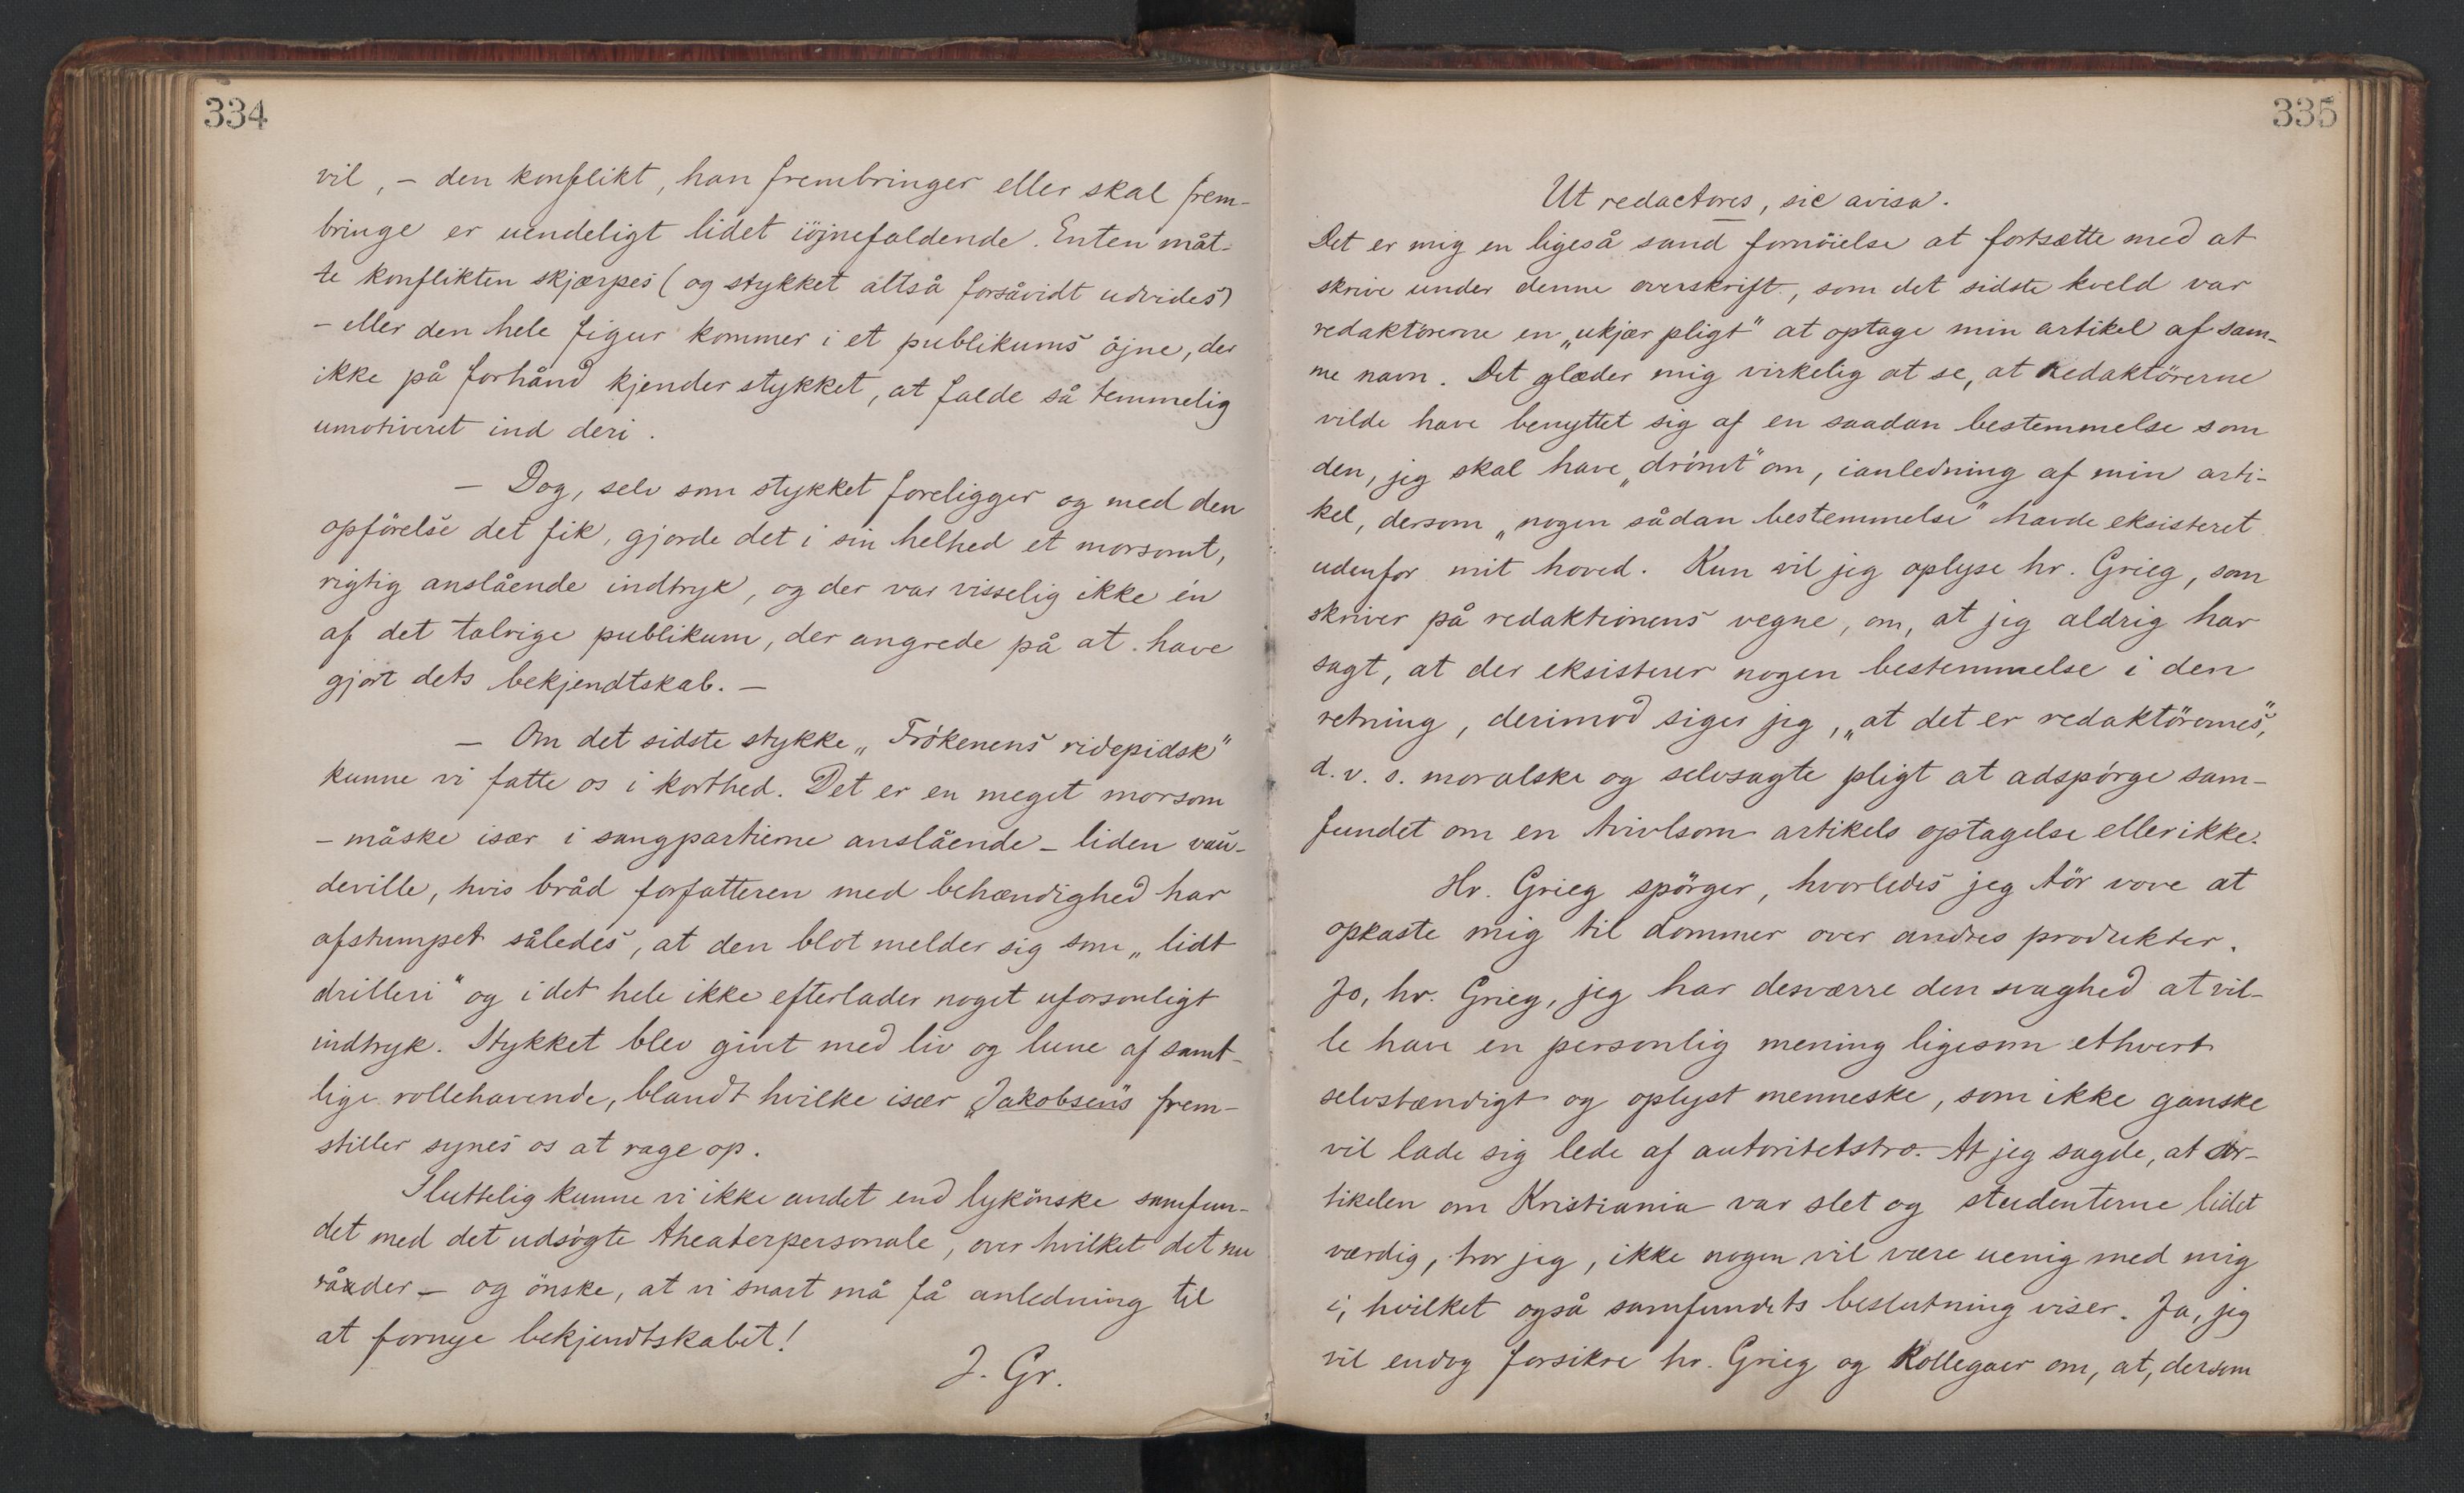 334
vil, – den konflikt, han frembringer eller skal frem-
bringe er uendeligt lidet iöjnefaldende. Enten måt-
te konflikten skjærpes (og stykket altså forsåvidt udvides)
– eller den hele figur kommer i et publikums öjne, der
ikke på forhånd kjender stykket, at falde så temmelig
umotiveret ind deri.
– Dog, selv som stykket foreligger og med den
opförelse det fik, gjorde det i sin helhed et morsomt,
rigtig anslående indtryk, og der var visselig ikke én
af det talrige publikum, der angrede på at have
gjort dets bekjendtskab. –
– Om det sidste stykke „Frökenens ridepidsk"
kunne vi fatte os i korthed. Det er en meget morsom
– måske især i sangpartierne anslående – liden vau-
deville, hvis bråd forfatteren med behændighed har
afstumpet således, at den blot melder sig som „lidt
drilleri" og i det hele ikke efterlader noget uforsonligt
indtryk. Stykket blev givet med liv og lune af samt-
lige rollehavende, blandt hvilke især „Jakobsens" frem-
stiller synes os at rage op.
Sluttelig kunne vi ikke andet end lykönske samfun-
det med det udsögte theaterpersonale, over hvilket det nu
råder – og önske, at vi snart må få anledning til
at fornye bekjendtskabet!
J. Gr.
335
Ut redactores, sic avisa.
Det er mig en ligeså sand fornöielse at fortsætte med at
skrive under denne overskrift, som det sidste kveld var
redaktörerne en „ukjær pligt" at optage min artikel af sam-
me navn. Det glæder mig virkelig at se, at Redaktörerne
vilde have benyttet sig af en saadan bestemmelse som
den, jeg skal have „drömt" om, ianledning af min arti-
kel, dersom „nogen sådan bestemmelse" havde eksisteret
udenfor mit hoved. Kun vil jeg oplyse hr. Grieg, som
skriver på redaktionens vegne, om, at jeg aldrig har
sagt, at der eksisterer nogen bestemmelse i den
retning, derimod siger jeg, „at det er redaktörernes",
d. v. s. moralske og selvsagte pligt at adspörge sam-
fundet om en tvivlsom artikels optagelse eller ikke.
Hr. Grieg spörger, hvorledes jeg tör vove at
opkaste mig til dommer over andres produkter.
Jo, hr. Grieg, jeg har desværre den svaghed at vil-
le have en personlig mening ligesom ethvert
selvstændigt og oplyst menneske, som ikke ganske
vil lade sig lede af autoritetstro. At jeg sagde, at Ar-
tikelen om Kristiania var slet og studenterne lidet
værdig, tror jeg, ikke nogen vil være uenig med mig
i, hvilket også samfundets beslutning viser. Ja, jeg
vil endog forsikre hr. Grieg og Kollegaer om, at, dersom